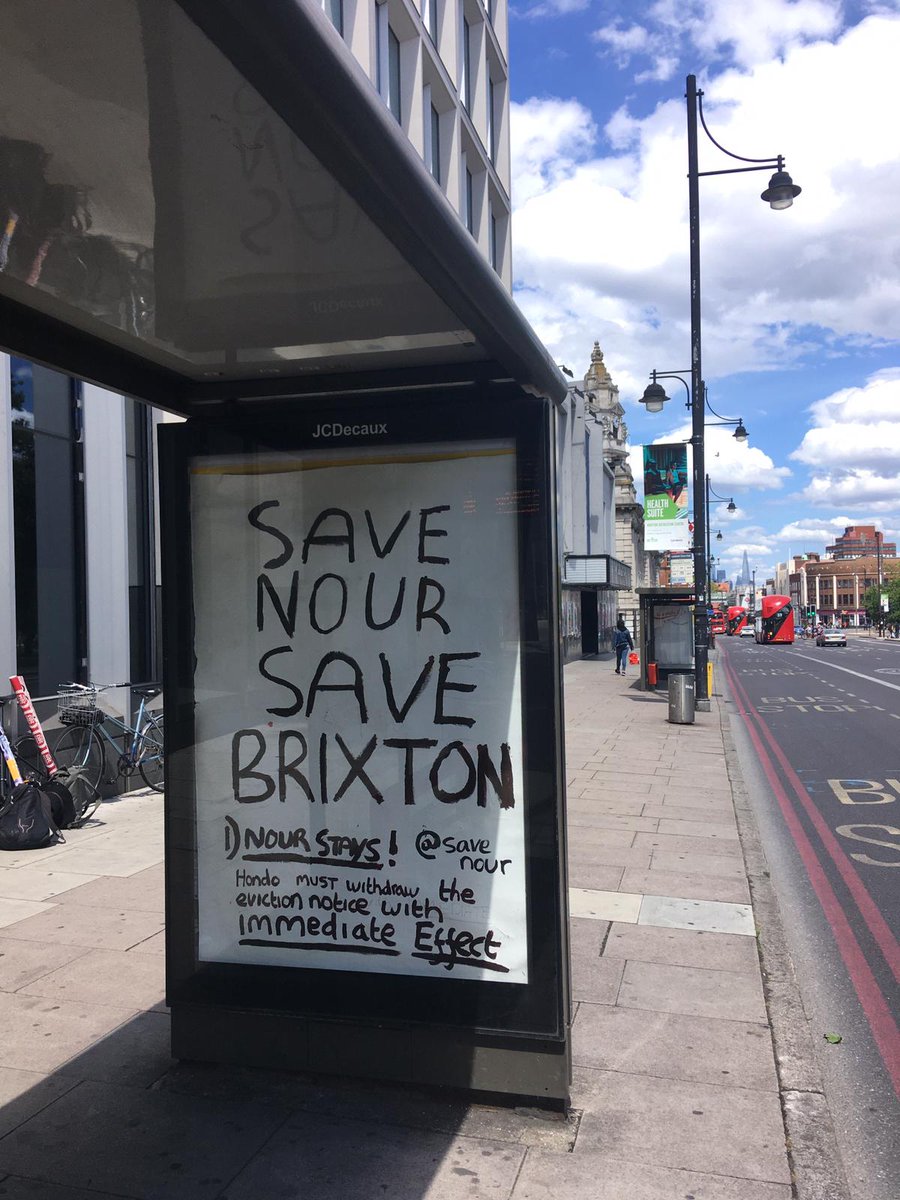 JCDecaux
SAVE
NOUR
SAVE
BRIXTON
1) NOUR STAYS! @save
nour
Hondo must withdraw the
eviction notice with
immediate Effect
HEALTH
SUITE
BUS
STOP